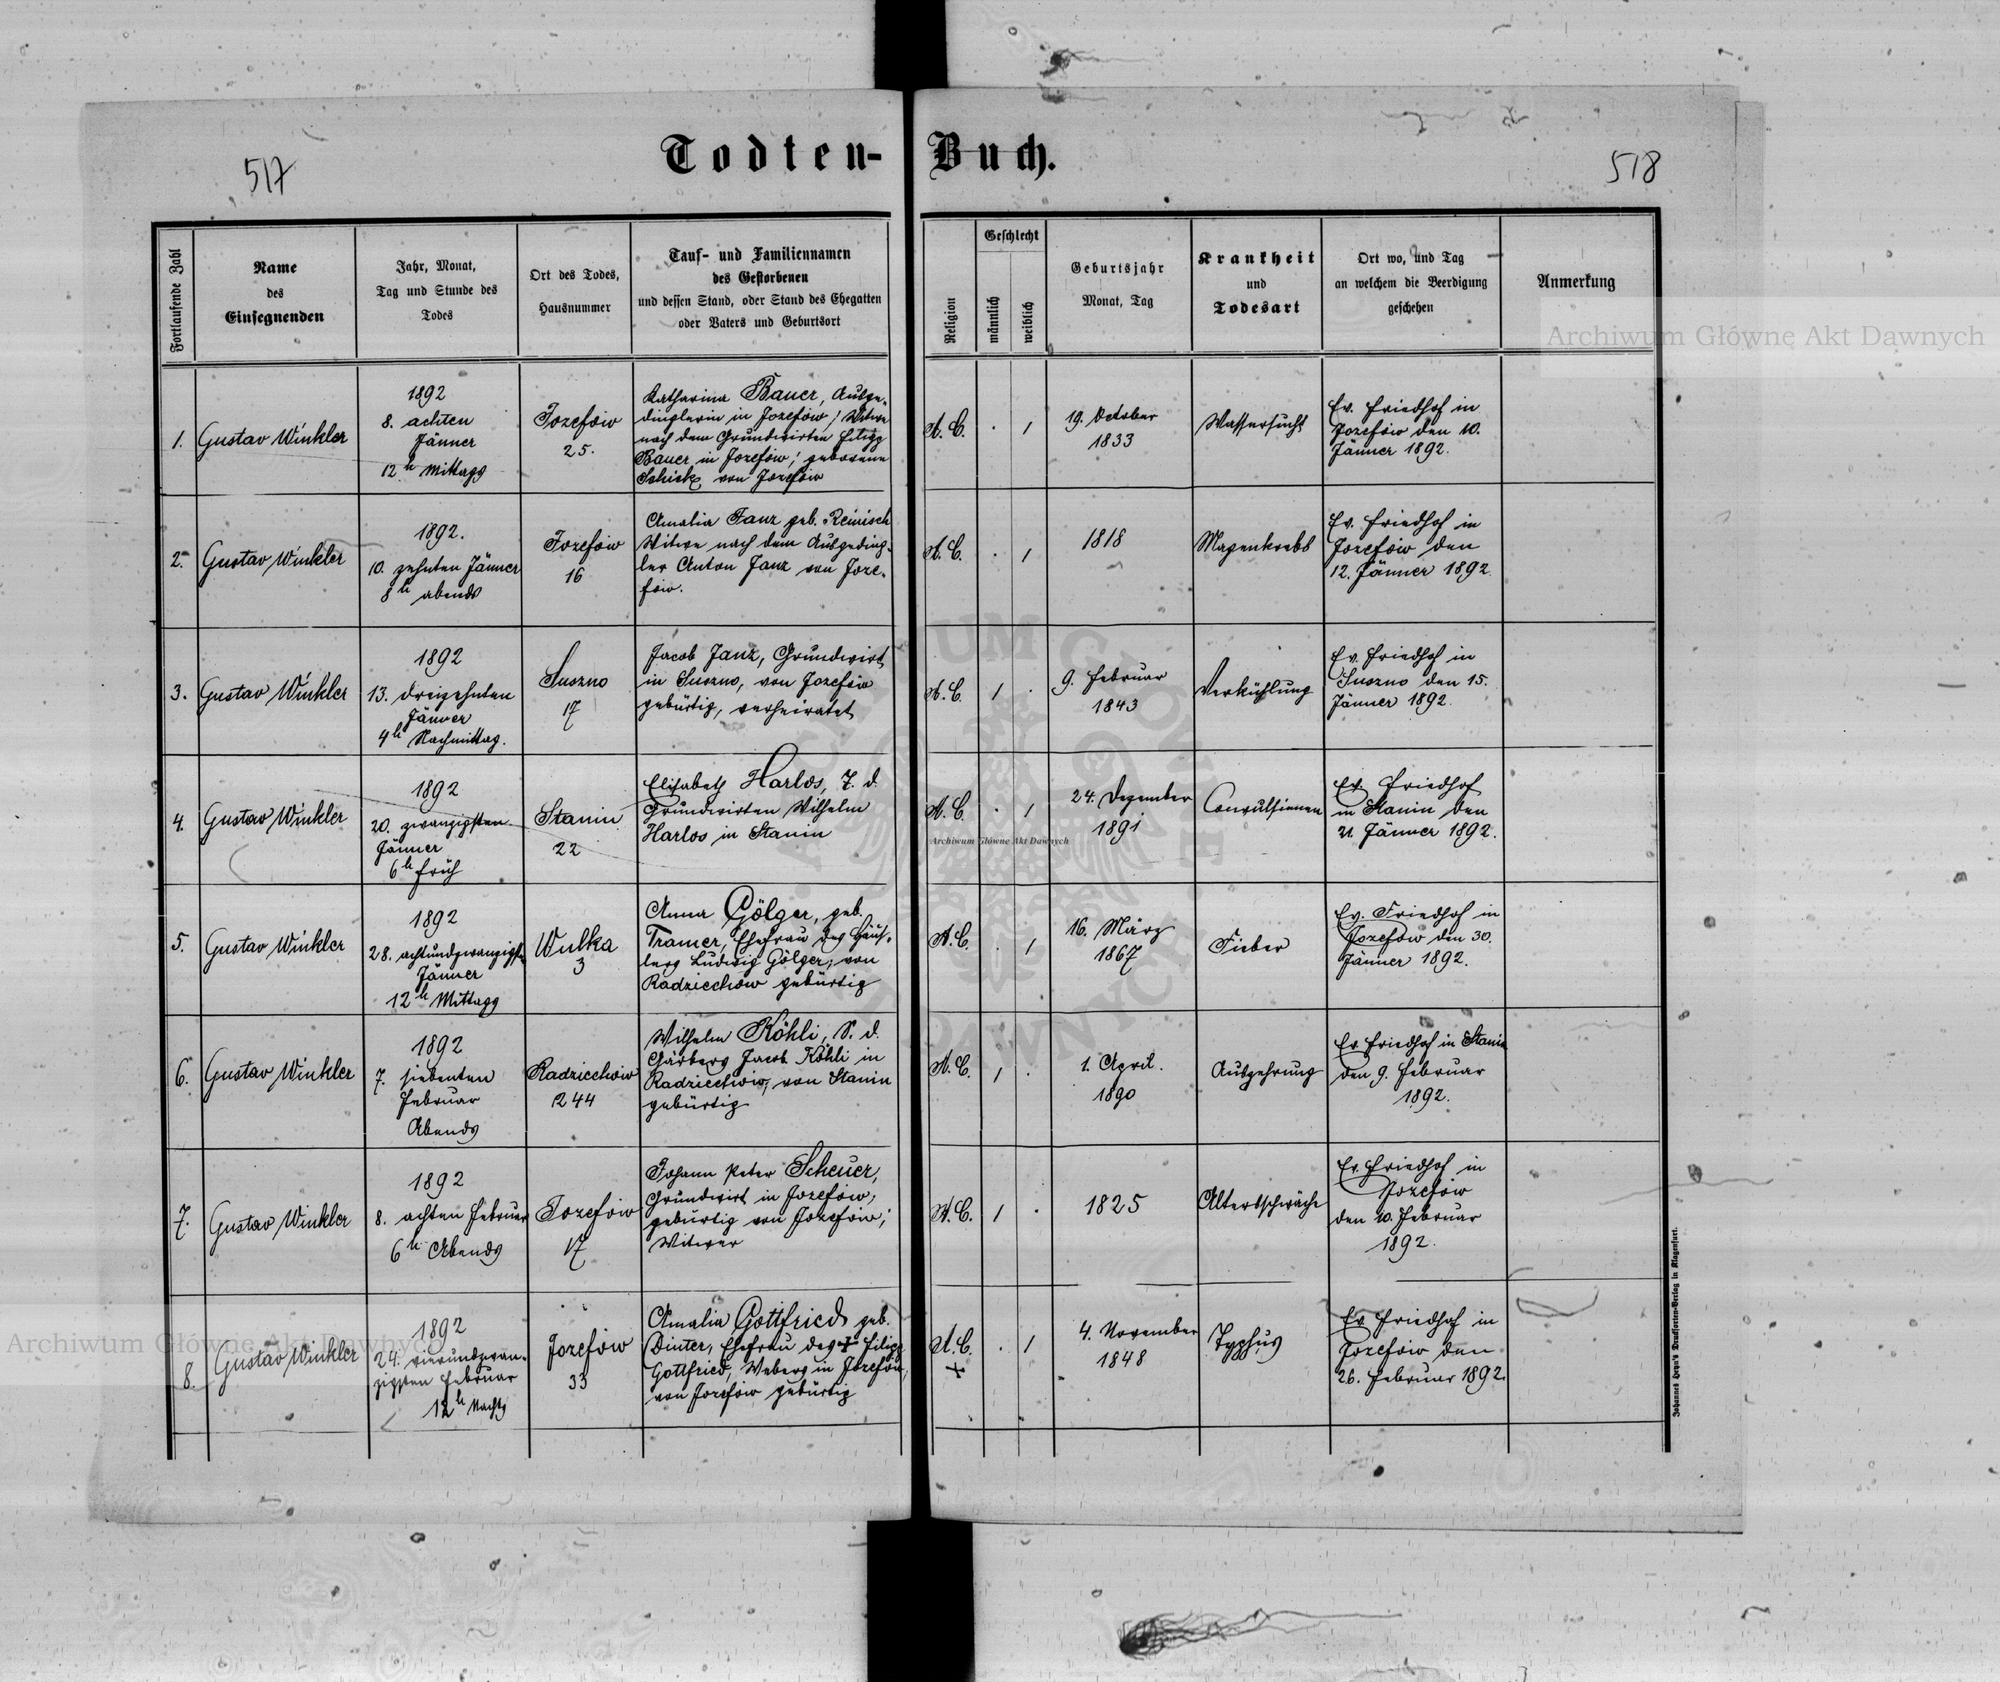 Todten-Buch.
517
518
Fortlaufende Zahl
Name
des
Einsegnenden
Jahr, Monat,
Tag und Stunde des
Todes
Ort des Todes,
Hausnummer
Tauf- und Familiennamen
des Gestorbenen
und dessen Stand, oder Stand des Ehegatten
oder Vaters und Geburtsort
Religion
Geschlecht
männlich
weiblich
Geburtsjahr
Monat, Tag
Krankheit
und
Todesart
Ort wo, und Tag
an welchem die Beerdigung
geschehen
Anmerkung
Archiwum Główne Akt Dawnych
1.
Gustav Winkler
1892
8. achten
Jänner
12h Mittags
Jozefów
25.
Katharina Bauer, Ausge-
dinglerin in Jozefów, Witwe
nach dem Grundwirten Filipp
Bauer in Jozefów, geborene
Schick von Jozefów
A. C.
. 1
19. October
1833
Wassersucht
Ev. Friedhof in
Jozefów den 10.
Jänner 1892.
2.
Gustav Winkler
1892.
10. zehnten Jänner
8h abends
Jozefów
16
Amalia Janz geb. Reinisch
Witwe nach dem Ausgeding-
ler Anton Janz von Joze-
fów.
A. C.
. 1
1818
Magenkrebs
Ev. Friedhof in
Jozefów den
12. Jänner 1892.
3.
Gustav Winkler
1892
13. dreizehnten
Jänner
4h Nachmittag.
Suszno
17
Jacob Janz, Grundwirt
in Suszno, von Jozefów
gebürtig, verheiratet
A. C.
1 .
9. Februar
1843
Verkühlung
Ev. Friedhof in
Suszno den 15.
Jänner 1892.
4.
Gustav Winkler
1892
20. zwanzigsten
Jänner
6h früh
Stanin
22
Elisabeth Harlos, T. d.
Grundwirten Wilhelm
Harlos in Stanin
A. C.
. 1
24. Dezember
1891
Convulsionen
Ev. Friedhof
in Stanin den
21. Jänner 1892.
Archiwum Główne Akt Dawnych
5.
Gustav Winkler
1892
28. achtundzwanzigsten
Jänner
12h Mittags
Wulka
3
Anna Gölger, geb.
Tramer, Ehefrau des Häus-
lers Ludwig Gölger, von
Radziechów gebürtig
A. C.
. 1
16. März
1867
Fieber
Ev. Friedhof in
Jozefów den 30.
Jänner 1892.
6.
Gustav Winkler
1892
7. siebenten
Februar
Abends
Radziechów
244
Wilhelm Köhli, S. d.
Gärbers Jacob Köhli in
Radziechów, von Stanin
gebürtig
A. C.
1 .
1. April.
1890
Auszehrung
Ev. Friedhof in Stanin
den 9. Februar
1892.
7.
Gustav Winkler
1892
8. achten Februar
6h Abends
Jozefów
17
Johann Peter Scheuer,
Grundwirt in Jozefów,
gebürtig von Jozefów,
Witwer
A. C.
1 .
1825
Altersschwäche
Ev. Friedhof in
Jozefów
den 10. Februar
1892.
8.
Gustav Winkler
1892
24. vierundzwan-
zigsten Februar
12h Nachts
Jozefów
33
Amalia Gottfried geb.
Dinter, Ehefrau des Filipp
Gottfried, Webers in Jozefów,
von Jozefów gebürtig
A. C.
. 1
4. November
1848
Typhus
Ev. Friedhof in
Jozefów den
26. Februar 1892.
Archiwum Główne Akt Dawnych
Johannes Heyn's Drucksorten-Verlag in Klagenfurt.